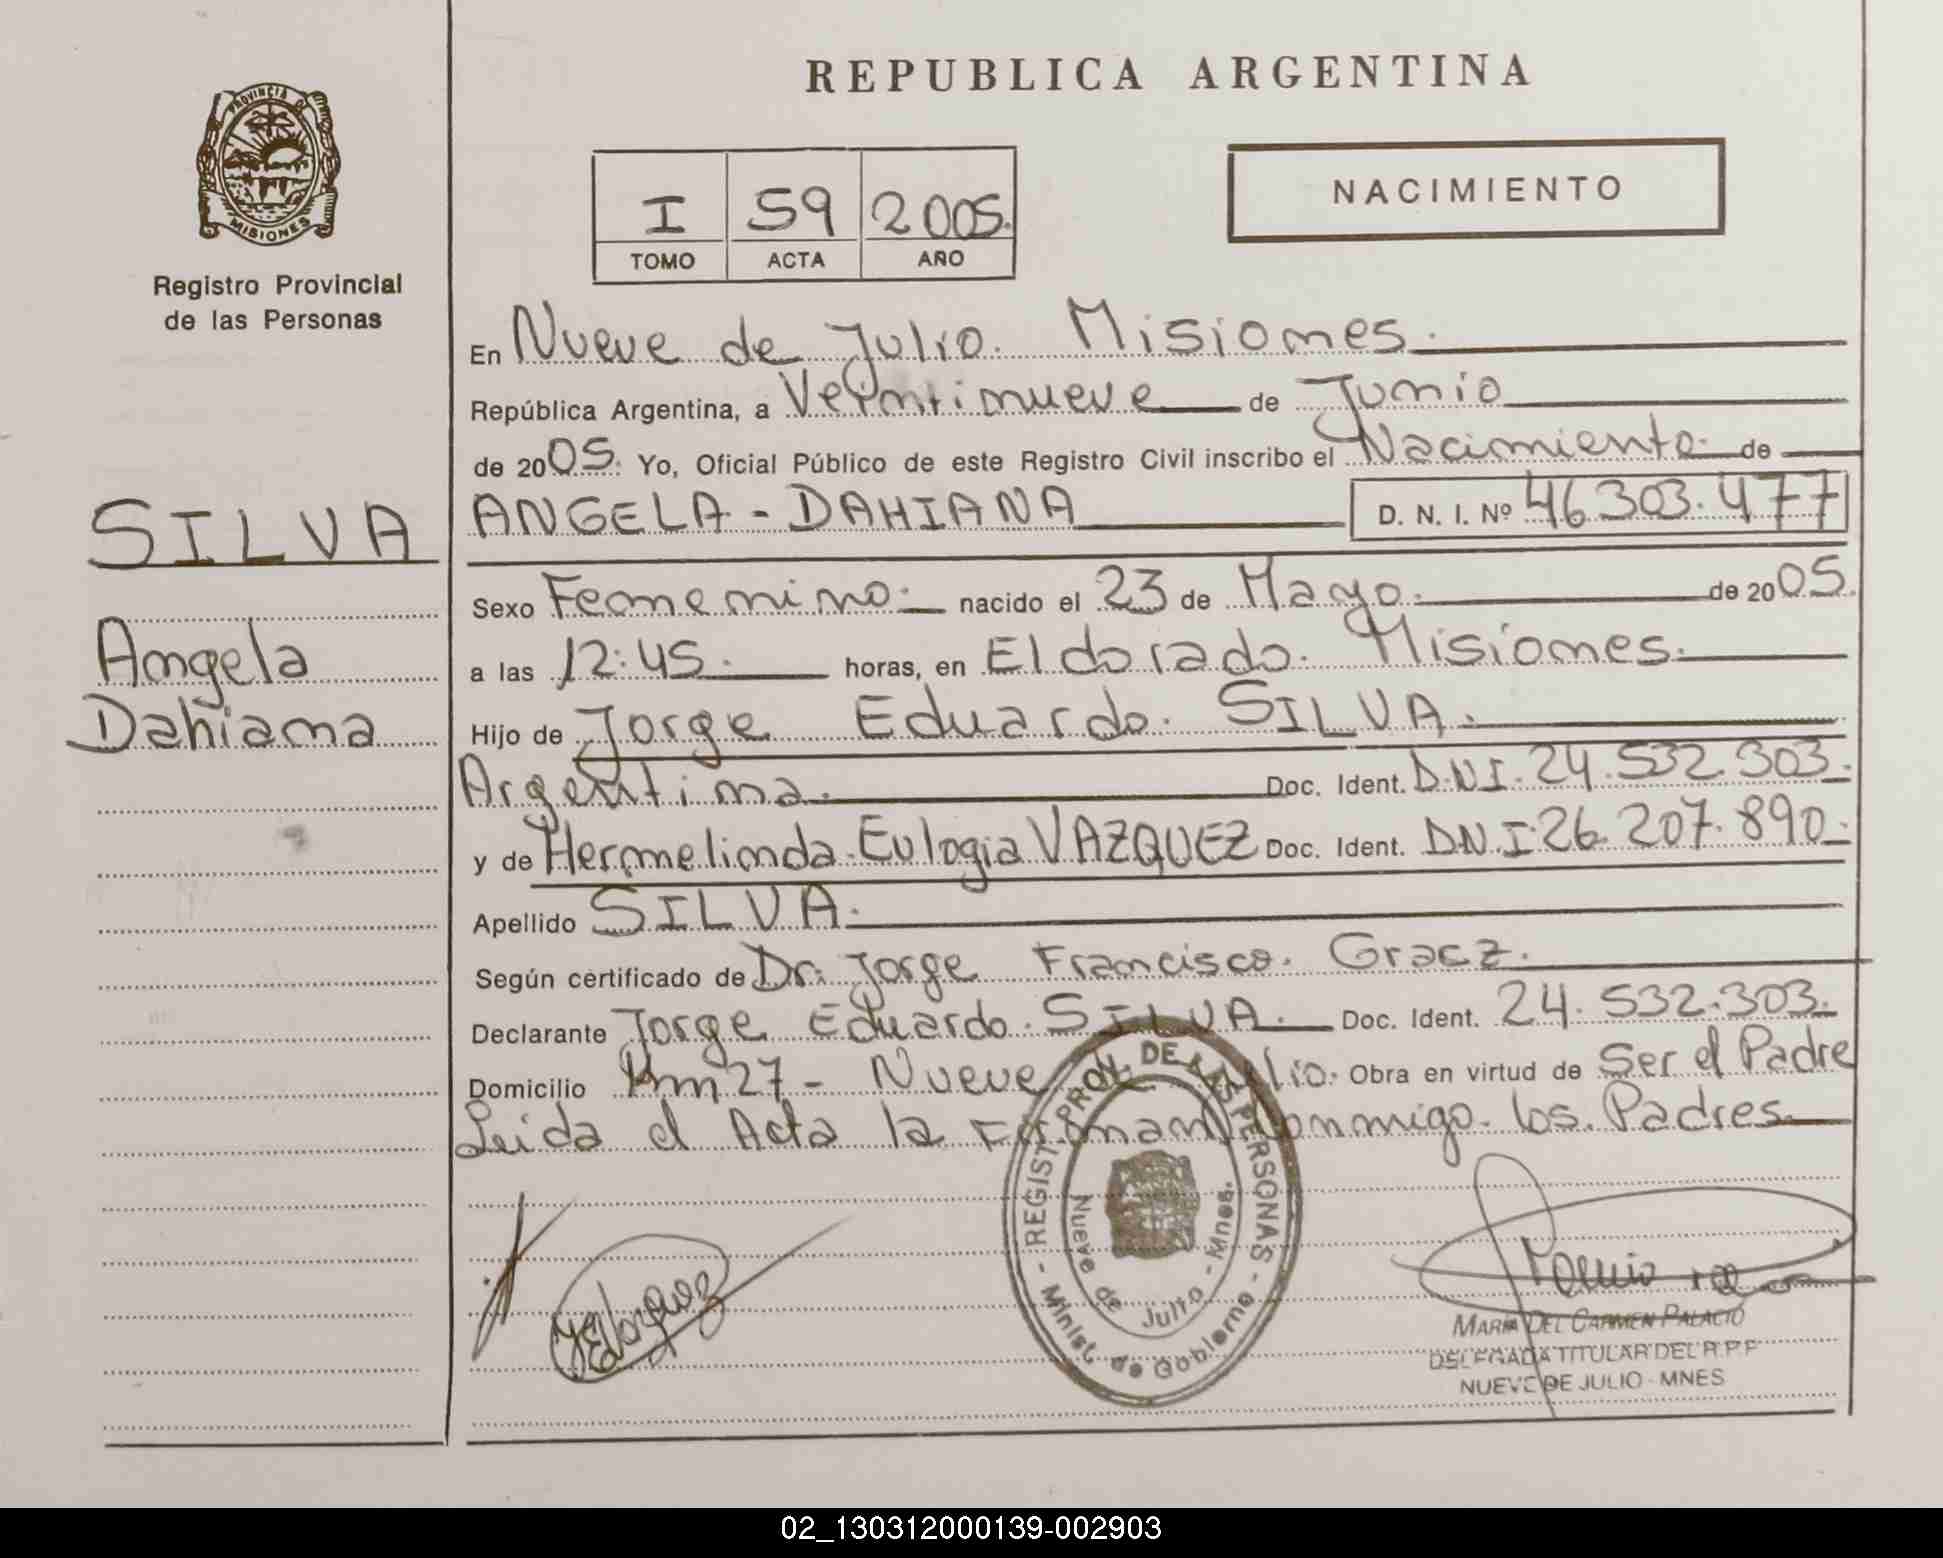 REPUBLICA ARGENTINA
PROVINCIA DE
MISIONES
Registro Provincial
de las Personas
I 59 2005.
TOMO ACTA AÑO
NACIMIENTO
SILVA
Angela
Dahiana
En Nueve de Julio. Misiones.
República Argentina, a Veintinueve de Junio
de 2005. Yo, Oficial Público de este Registro Civil inscribo el Nacimiento de
ANGELA - DAHIANA D. N. I. Nº 46.303.477
Sexo Femenino. nacido el 23 de Mayo. de 2005.
a las 12:45. horas, en Eldorado. Misiones.
Hijo de Jorge Eduardo. SILVA.
Argentina. Doc. Ident. D.N.I. 24.532.303.
y de Hermelinda. Eulogia VAZQUEZ Doc. Ident. D.N.I. 26.207.890.
Apellido SILVA.
Según certificado de Dr. Jorge Francisco. Gracz.
Declarante Jorge Eduardo. SILVA. Doc. Ident. 24.532.303.
Domicilio Km 27 - Nueve Julio. Obra en virtud de Ser el Padre
Leida el Acta la Firman Conmigo. los. Padres.
- REGIST. PROV. DE LAS PERSONAS -
Minist. de Gobierno
Nueve de Julio - Mnes.
HEVazquez
MARIA DEL CARMEN PALACIO
DELEGADA TITULAR DEL R.P.P
NUEVE DE JULIO - MNES
02_130312000139-002903